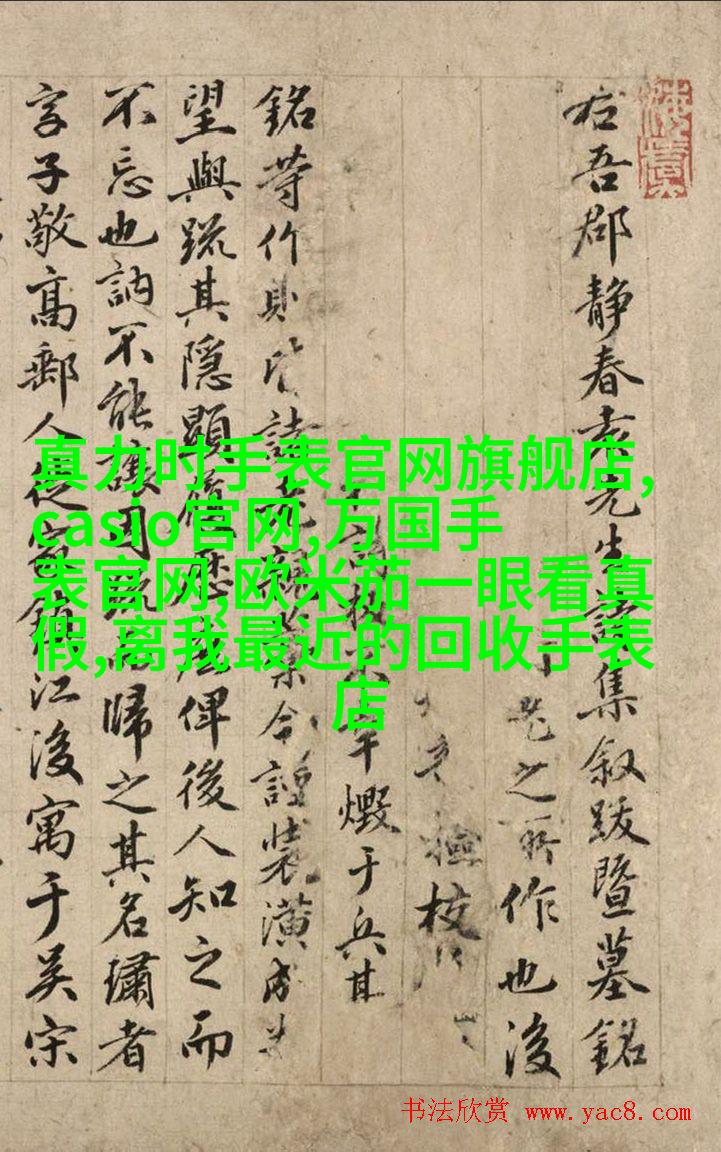 右吾郡静春袁先生詩集叙跋暨墓銘
之所作也後
檢校
燬于兵其
銘等作則皆諸今謹裝潢成
望與疏其隱顯履歷俾後人知之而
不忘也訥不能讓因歸之其名璛者
字子敬高郵人從宦鎮江後寓于吴宋
真力时手表官网旗舰店,
casio官网,万国手
表官网,欧米茄一眼看真
假,离我最近的回收手表
店
书法欣赏 www.yac8.com